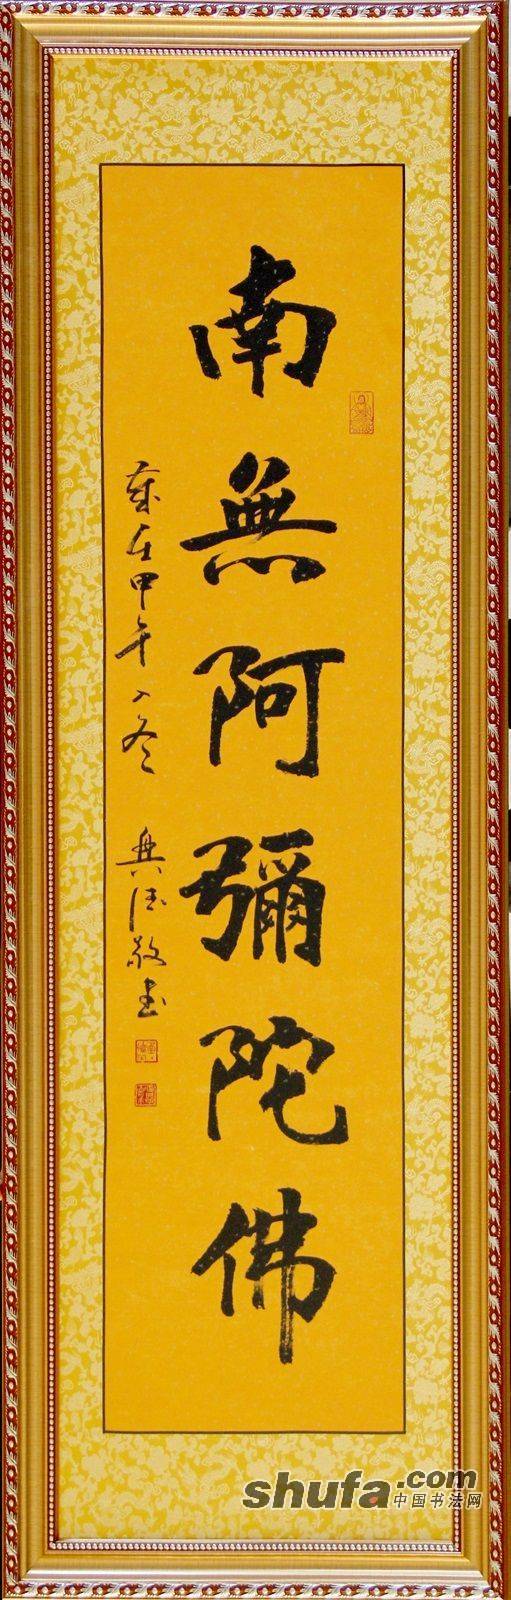 南無阿彌陀佛
歲在甲午入冬 興德敬書
shufa.com
中国书法网